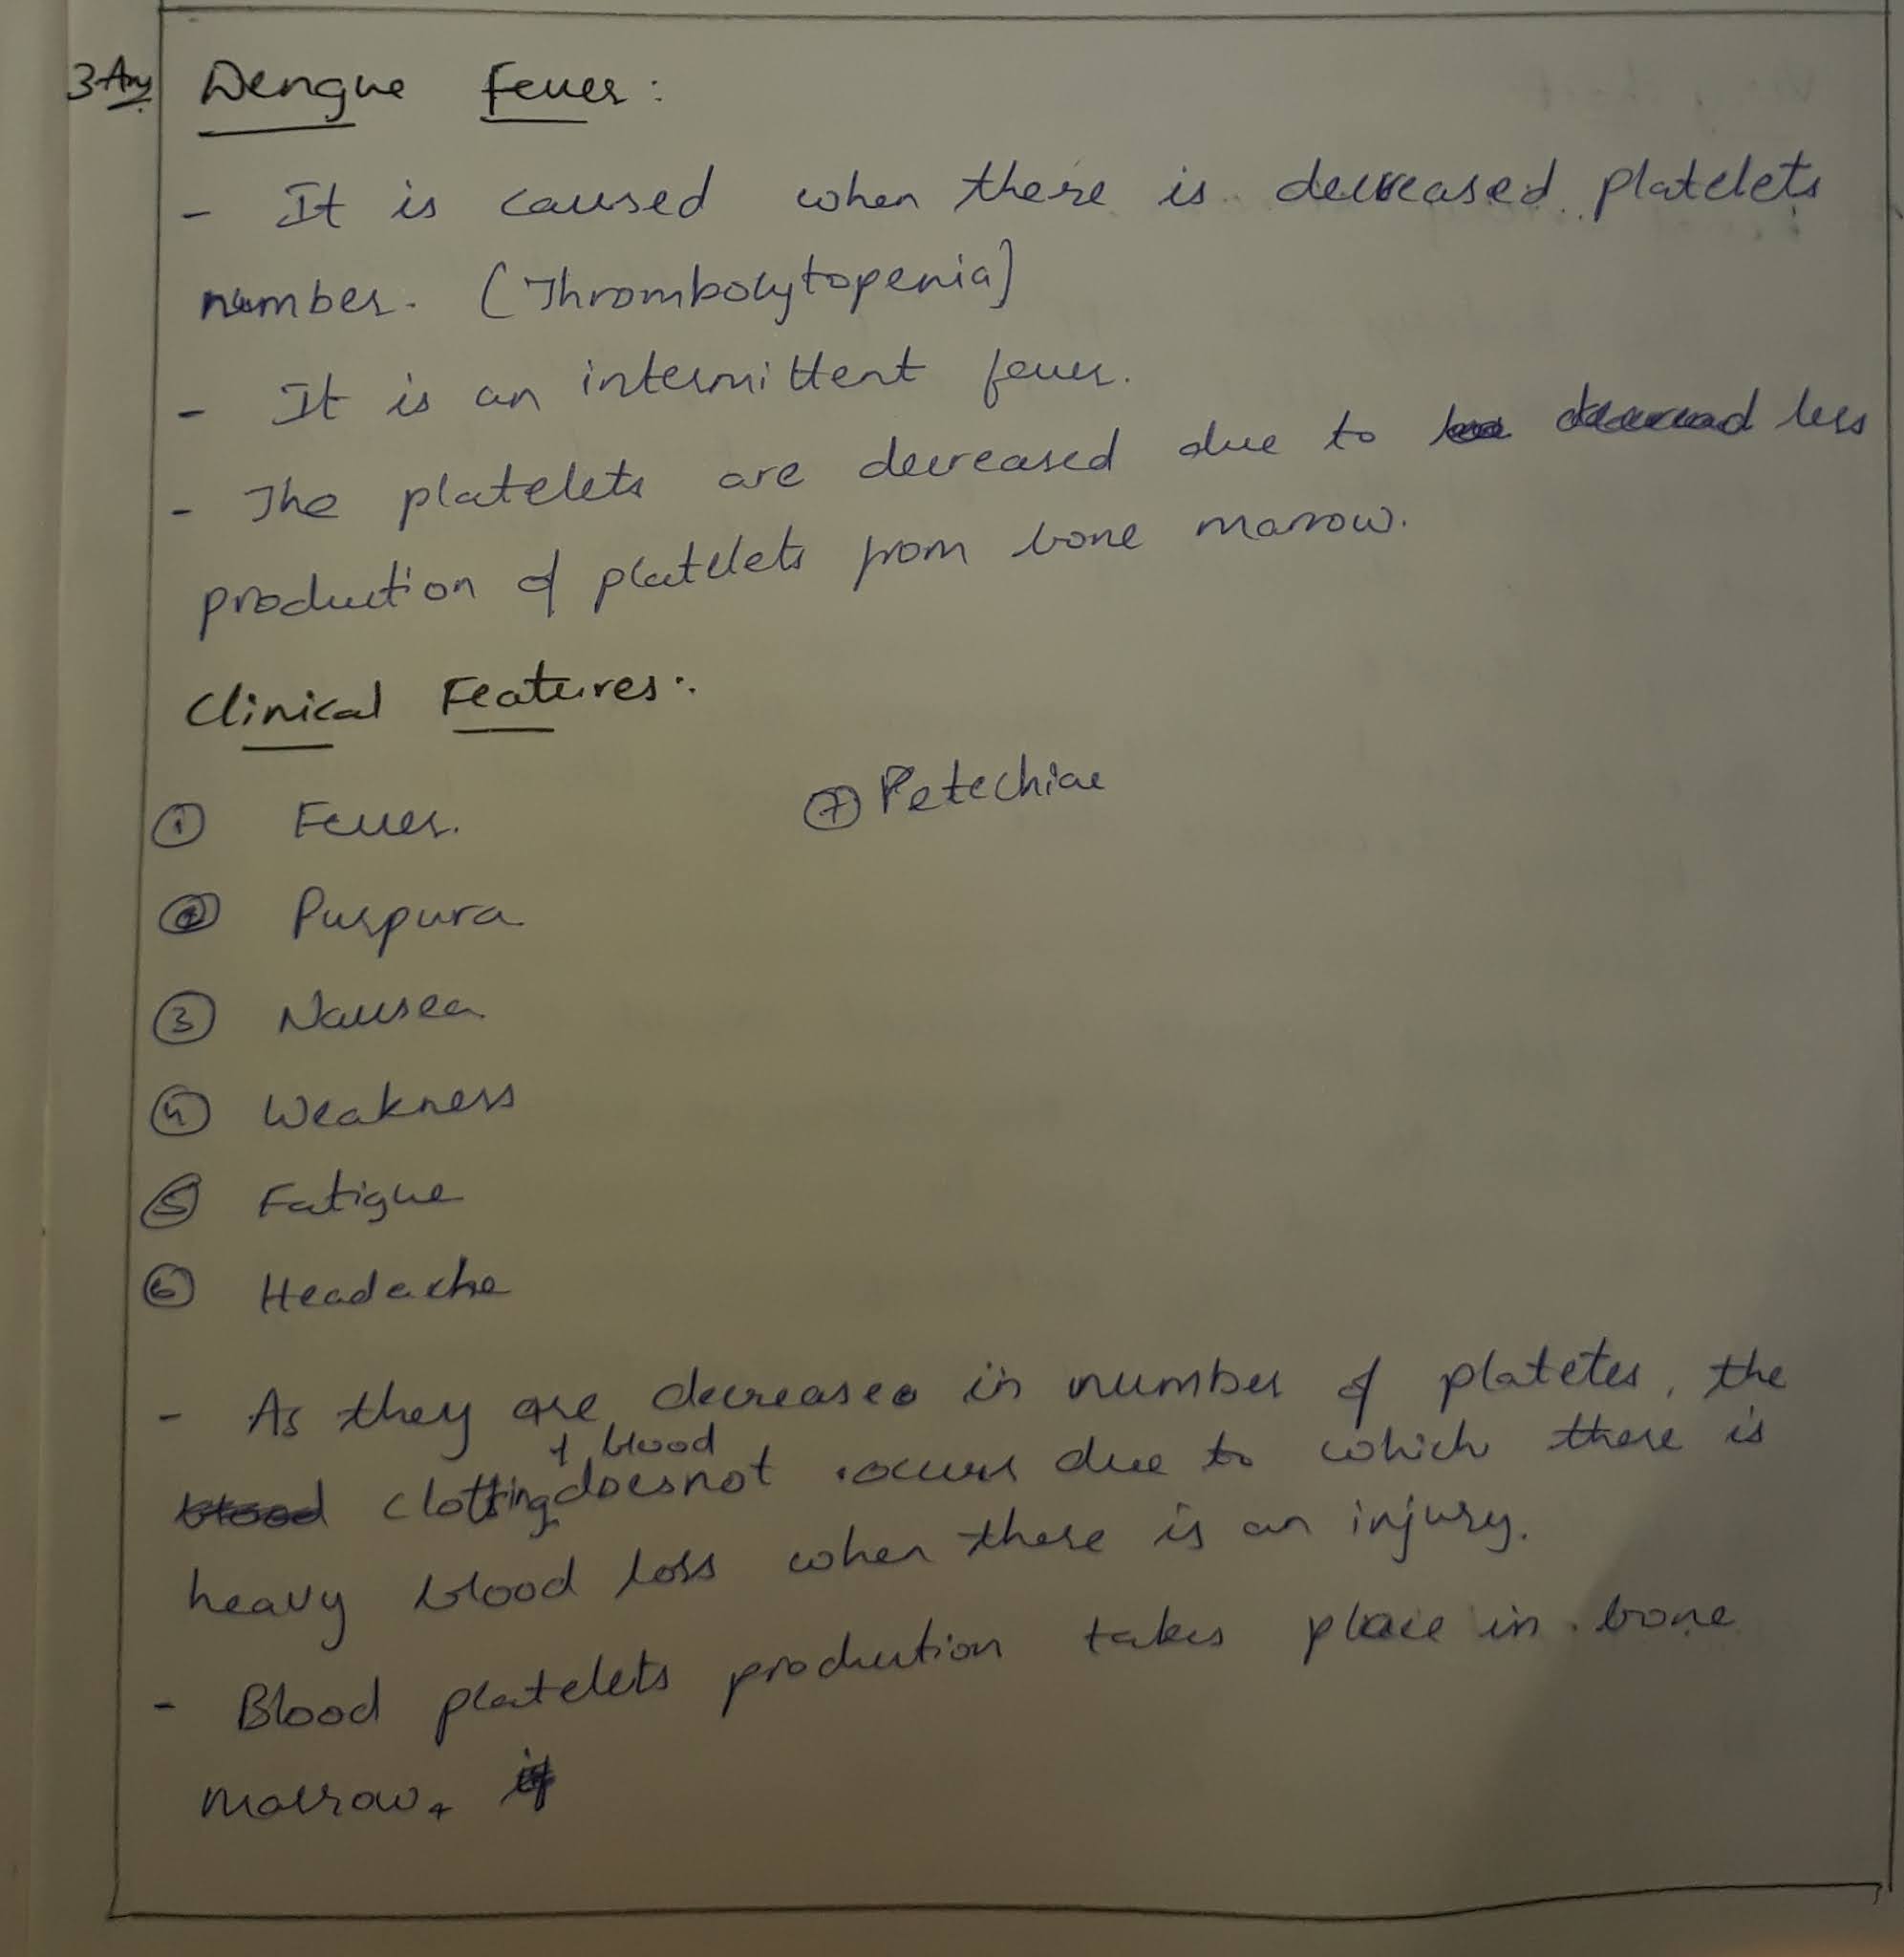 3 Ans Dengue Fever :
- It is caused when there is decreased platelets
number. (Thrombocytopenia)
- It is an intermittent fever.
- The platelets are decreased due to less
production of platelets from bone marrow.
Clinical Features :
① Fever.
② Purpura
③ Nausea
④ Weakness
⑤ Fatigue
⑥ Headache
⑦ Petechiae
- As they are decrease in number of platetes, the
clotting of blood doesnot occurs due to which there is
heavy blood loss when there is an injury.
- Blood platelets production takes place in bone
marrow.